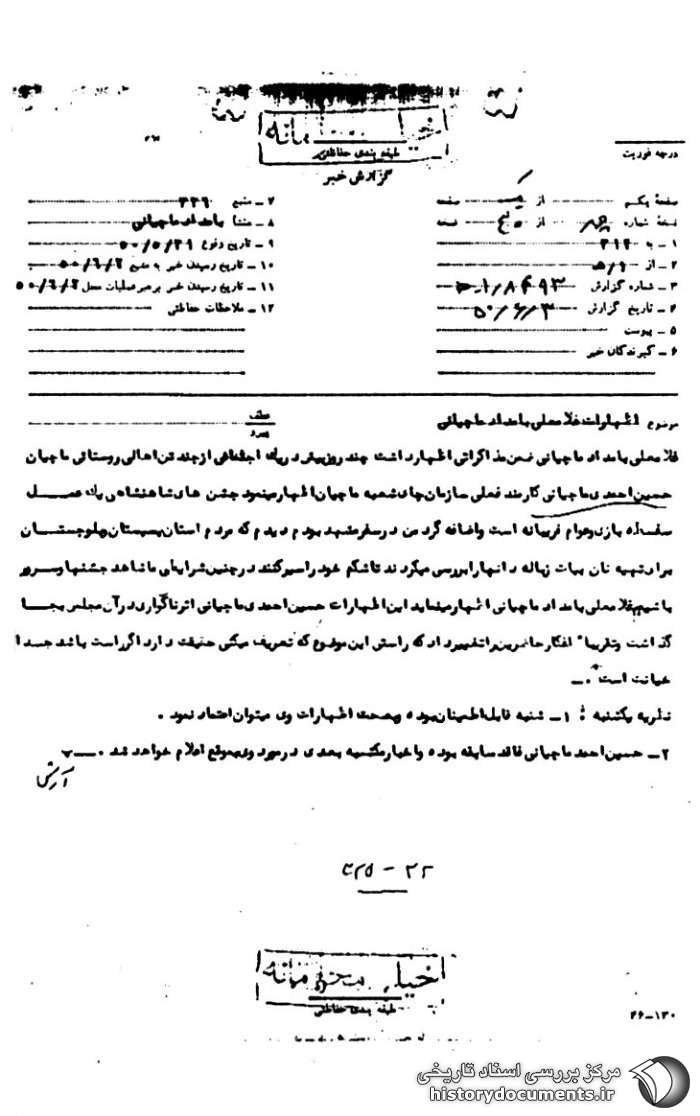 خیلی محرمانه
طبقه بندی حفاظتی
درجه فوریت
گزارش خبر
صفحهٔ یکم از صفحه
نسخهٔ شماره از نسخه
۱ـ به ۳۱۲
۲ـ از ۵۱
۳ـ شماره گزارش
۴ـ تاریخ گزارش ۵۰/۶/۳
۵ـ پیوست
۶ـ گیرندگان خبر
۷ـ منبع
۸ـ منشأ بامداد ماچیانی
۹ـ تاریخ وقوع ۵۰/۵/۳۱
۱۰ـ تاریخ رسیدن خبر به منبع ۵۰/۶/۲
۱۱ـ تاریخ رسیدن خبر برهبر عملیات محل ۵۰/۶/۲
۱۲ـ ملاحظات حفاظتی
موضوع اظهارات غلامعلی بامداد ماچیانی
عطف
پیرو
غلامعلی بامداد ماچیانی ضمن مذاکراتی اظهار داشت چند روز پیش در یک اجتماعی از چند تن اهالی روستائی ماچیان
حسین احمدی ماچیانی کارمند فعلی سازمان چای شعبه ماچیان اظهار مینمود جشن های شاهنشاهی یک عمل
سفسطه بازی و عوام فریبانه است واضافه کرد من در سفر مشهد بودم دیدم که مردم استان سیستان و بلوچستان
برای تهیه نان بیات زباله دانیها را بررسی میکردند تا شکم خود را سیر کنند در چنین شرایطی ما شاهد جشنها و سرور
باشیم غلامعلی بامداد ماچیانی اظهار مینماید این اظهارات حسین احمدی ماچیانی اثر ناگواری در آن مجلس بجا
گذاشت و تقریبا" افکار حاضرین را تغییر داد که راستی این موضوع که تعریف میکنی حقیقت دارد اگر راست باشد جدا
خیانت است .ــ
نظریه یکشنبه : ۱ـ شنبه قابل اطمینان بوده و بصحت اظهارات وی میتوان اعتماد نمود .
۲ـ حسین احمد ماچیانی فاقد سابقه بوده و اخبار مکتسبه بعدی در مورد وی بموقع اعلام خواهد شد .ــ
آرش
خیلی محرمانه
طبقه بندی حفاظتی
۲۶-۱۳۰
مرکز بررسی اسناد تاریخی
historydocuments.ir